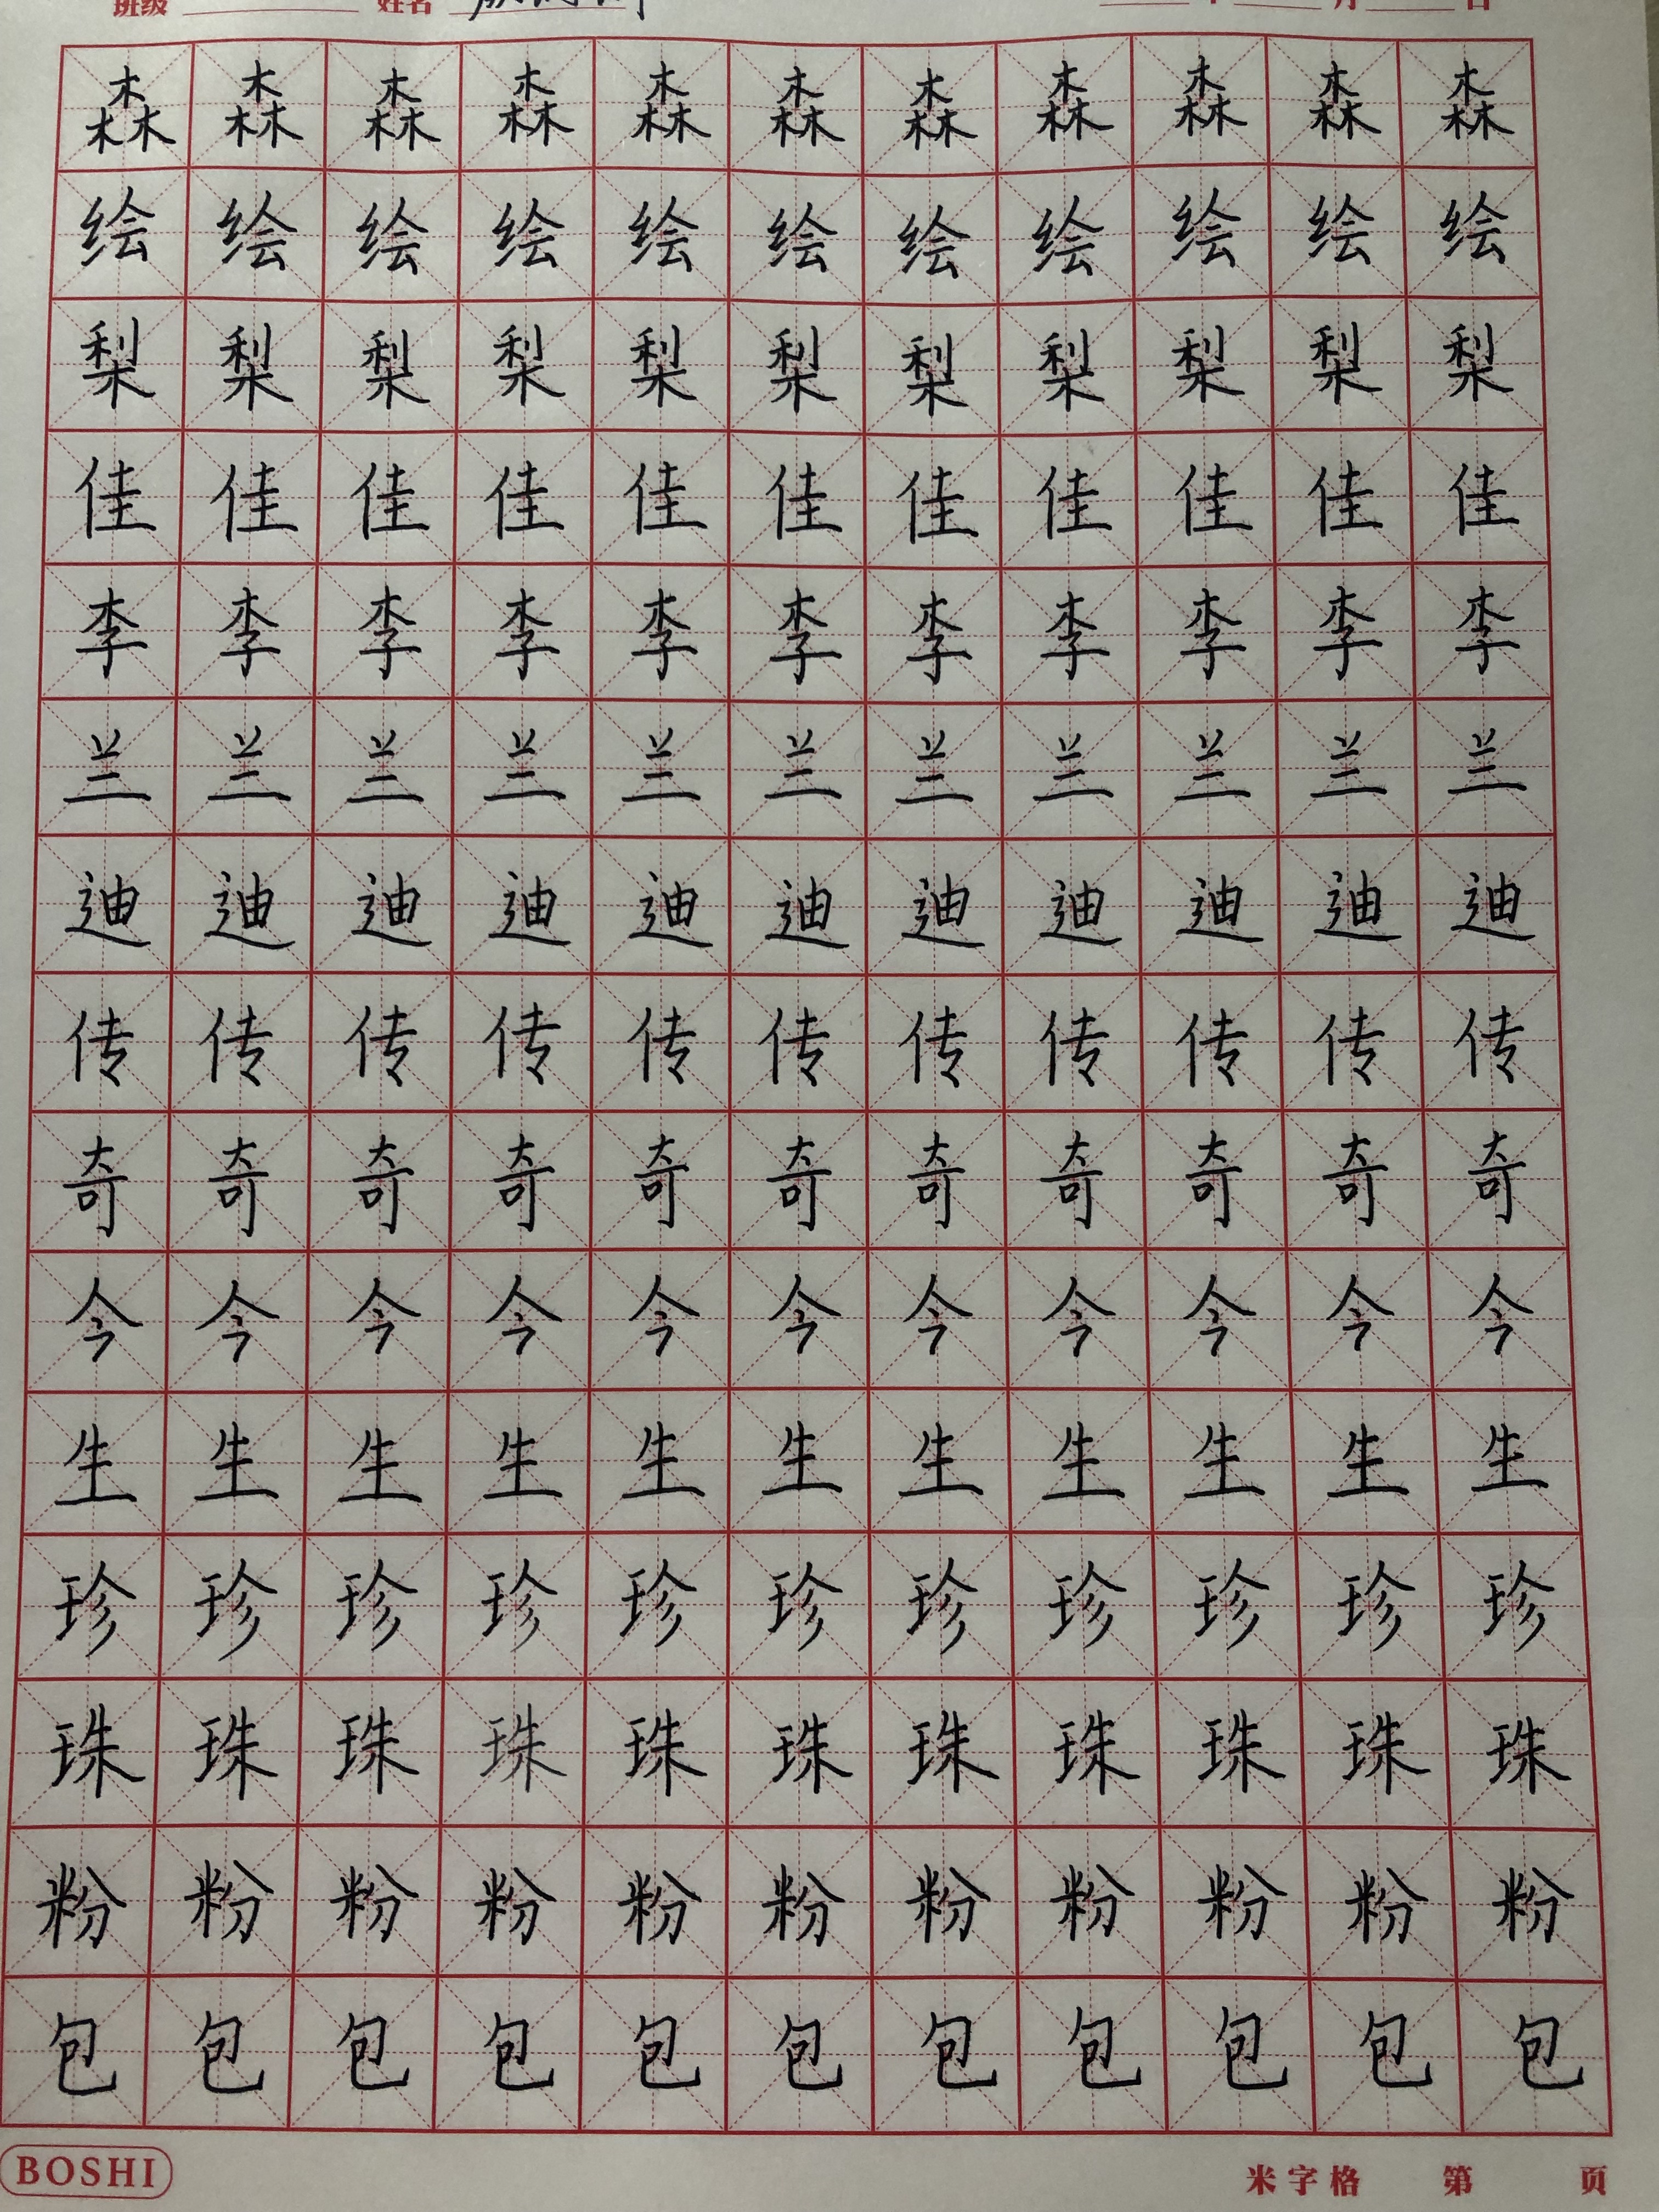 班级 姓名 年 月 日
森森森森森森森森森森森
绘绘绘绘绘绘绘绘绘绘绘
梨梨梨梨梨梨梨梨梨梨梨
佳佳佳佳佳佳佳佳佳佳佳
李李李李李李李李李李李
兰兰兰兰兰兰兰兰兰兰兰
迪迪迪迪迪迪迪迪迪迪迪
传传传传传传传传传传传
奇奇奇奇奇奇奇奇奇奇奇
今今今今今今今今今今今
生生生生生生生生生生生
珍珍珍珍珍珍珍珍珍珍珍
珠珠珠珠珠珠珠珠珠珠珠
粉粉粉粉粉粉粉粉粉粉粉
包包包包包包包包包包包
BOSHI 米字格 第 页